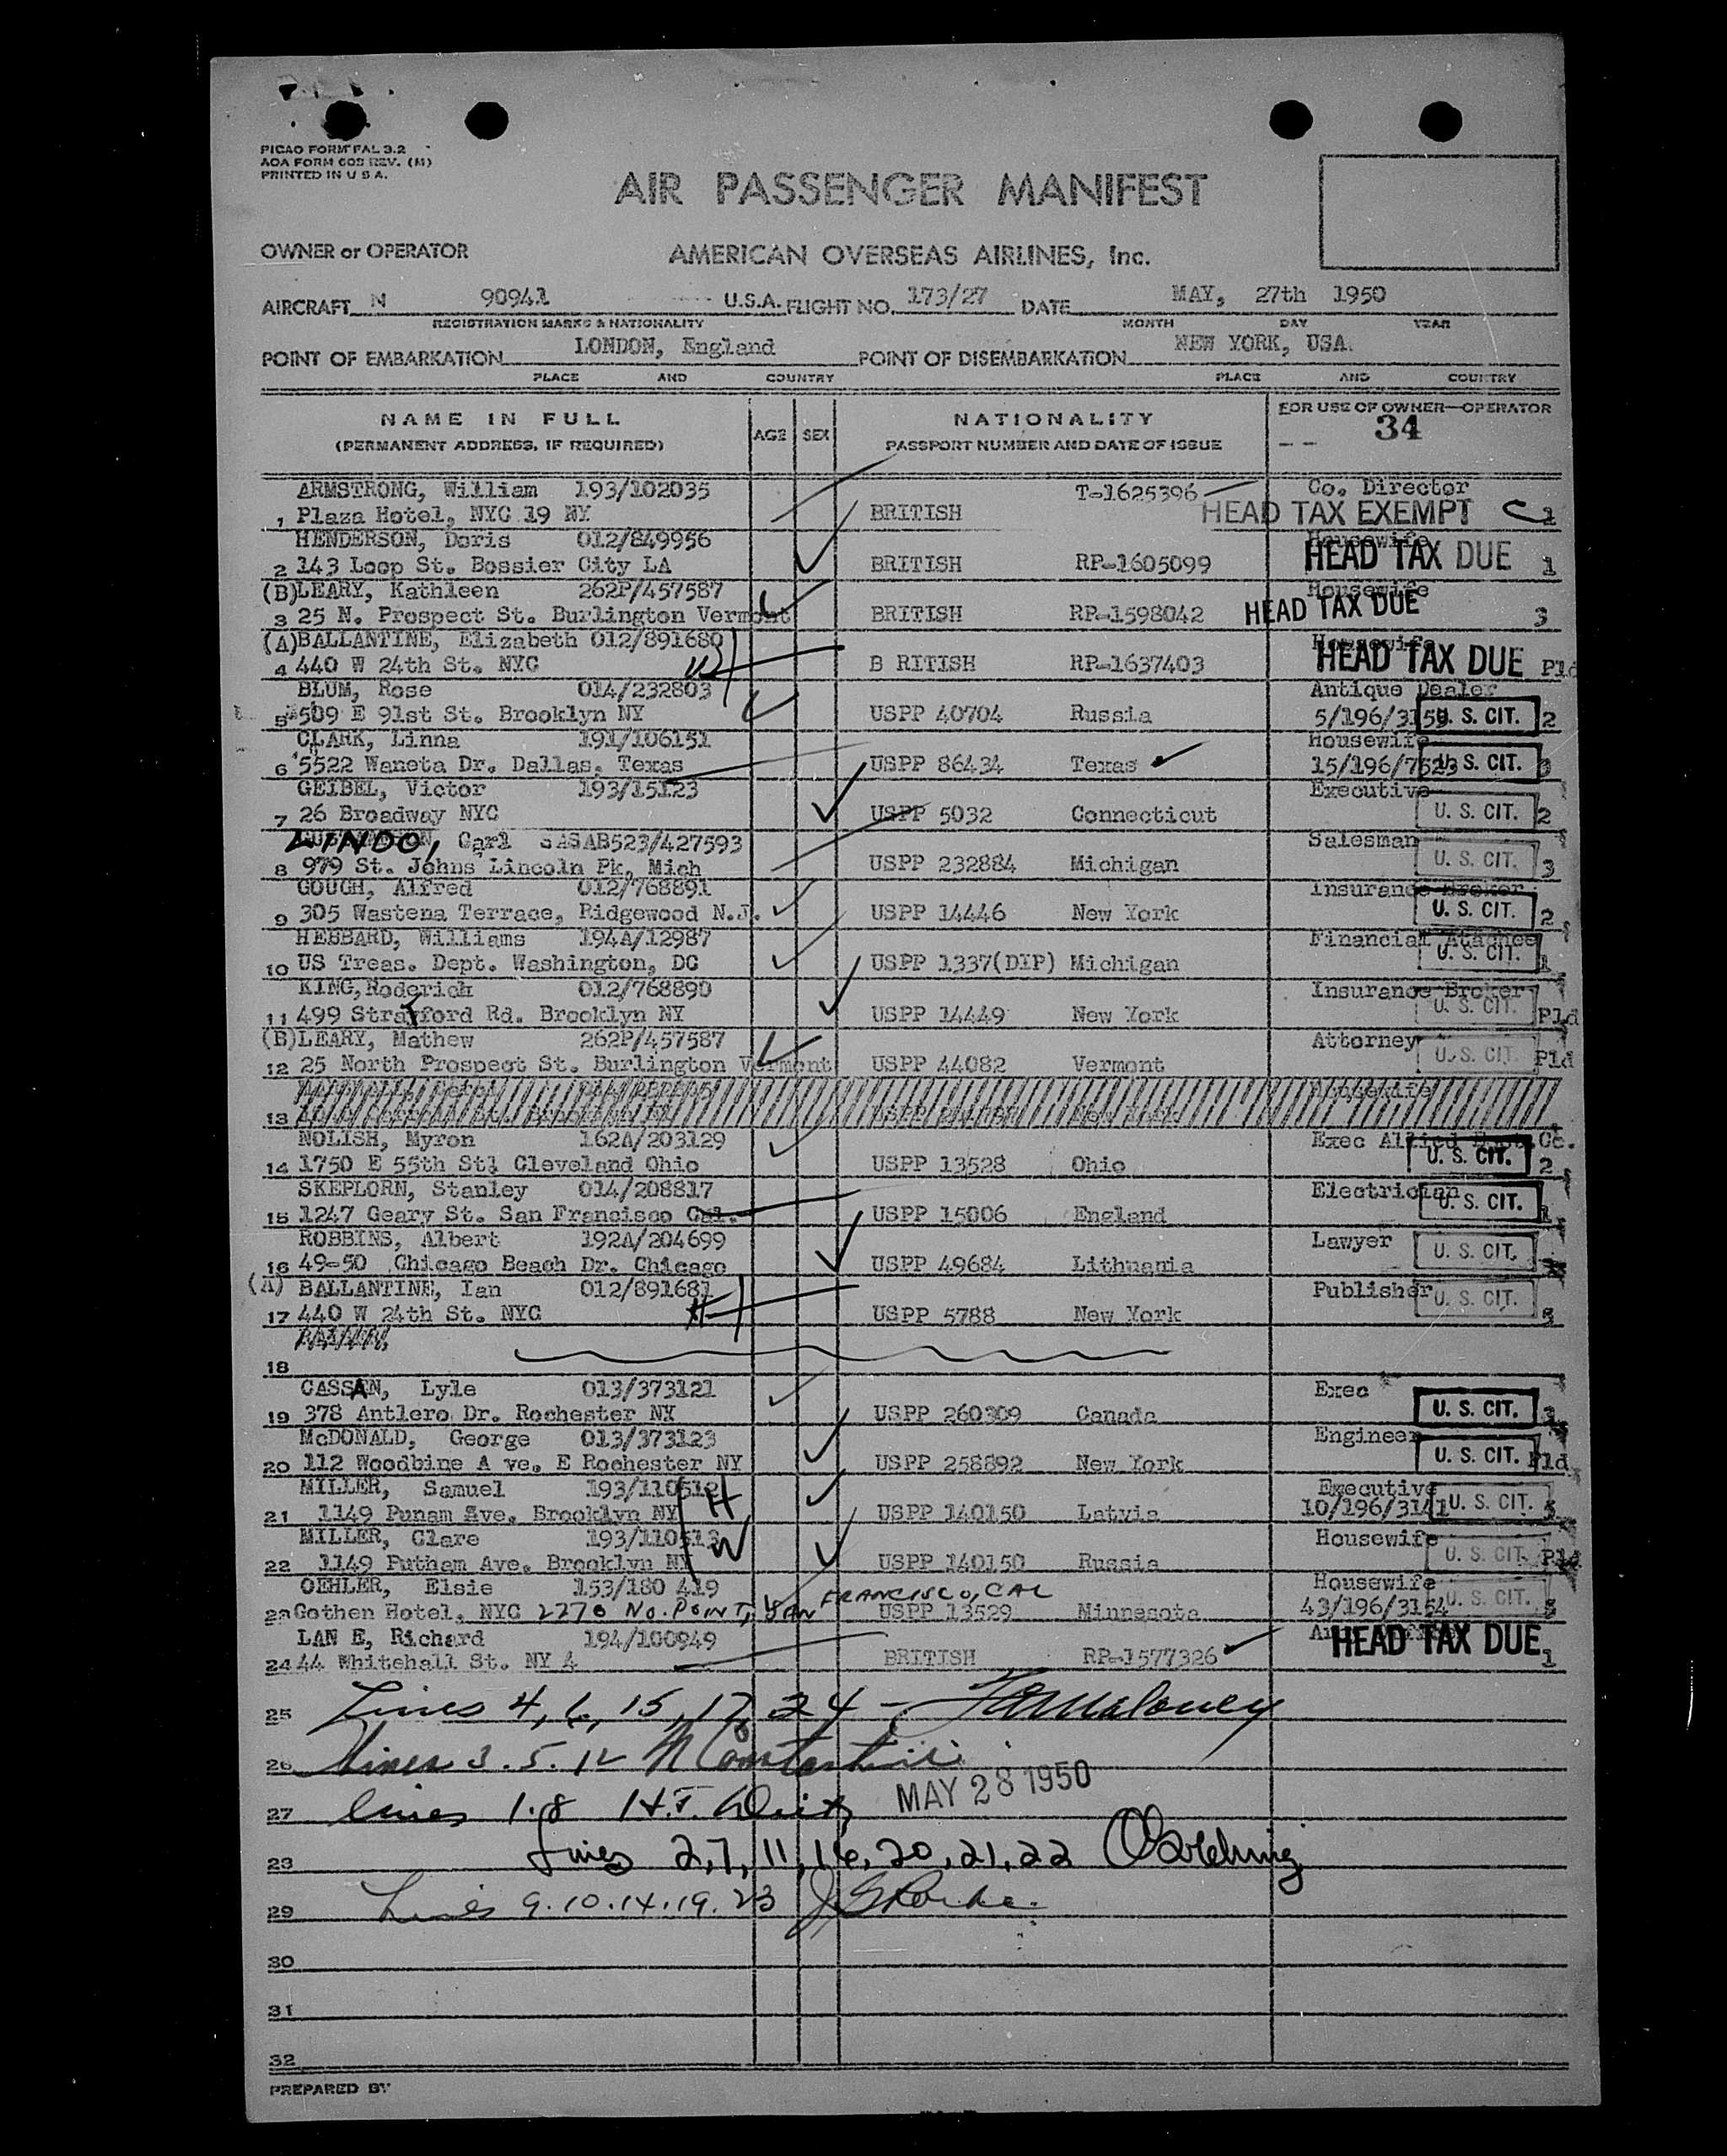 PICAO FORM FAL 3.2
AOA FORM 609 REV. (M)
PRINTED IN U S A.
AIR PASSENGER MANIFEST
OWNER or OPERATOR AMERICAN OVERSEAS AIRLINES, Inc.
AIRCRAFT N 90941 U.S.A. FLIGHT NO. 173/27 DATE MAY, 27th 1950
REGISTRATION MARKS & NATIONALITY MONTH DAY YEAR
POINT OF EMBARKATION LONDON, England POINT OF DISEMBARKATION NEW YORK, USA.
PLACE AND COUNTRY PLACE AND COUNTRY
NAME IN FULL AGE SEX NATIONALITY FOR USE OF OWNER—OPERATOR
(PERMANENT ADDRESS, IF REQUIRED) PASSPORT NUMBER AND DATE OF ISSUE -- 34
ARMSTRONG, William 193/102035 T-1625396 Co. Director
1 Plaza Hotel, NYC 19 NY BRITISH HEAD TAX EXEMPT C 1
HENDERSON, Doris 012/849956 Housewife
2 143 Loop St. Bossier City LA BRITISH RP-1605099 HEAD TAX DUE 1
(B)LEARY, Kathleen 262P/457587 Housewife
3 25 N. Prospect St. Burlington Vermont BRITISH RP-1598042 HEAD TAX DUE 3
(A)BALLANTINE, Elizabeth 012/891680 Housewife
4 440 W 24th St. NYC W B RITISH RP-1637403 HEAD TAX DUE Pld
BLUM, Rose 014/232803 Antique Dealer
5 509 E 91st St. Brooklyn NY USPP 40704 Russia 5/196/3159 U. S. CIT. 2
CLARK, Linna 191/106151 Housewife
6 5522 Waneta Dr. Dallas, Texas USPP 86434 Texas 15/196/7523 U. S. CIT.
GEIBEL, Victor 193/15123 Executive
7 26 Broadway NYC USPP 5032 Connecticut U. S. CIT. 2
LINDO, Carl SASAB523/427593 Salesman
8 979 St. Johns Lincoln Pk, Mich USPP 232884 Michigan U. S. CIT. 3
GOUGH, Alfred 012/768891 Insurance Broker
9 305 Wastena Terrace, Ridgewood N.J. USPP 14446 New York U. S. CIT. 2
HEBBARD, Williams 194A/12987 Financial Atachee
10 US Treas. Dept. Washington, DC USPP 1337(DIP) Michigan U. S. CIT. 1
KING, Roderich 012/768890 Insurance Broker
11 499 Stratford Rd. Brooklyn NY USPP 14449 New York U. S. CIT. Pld
(B)LEARY, Mathew 262P/457587 Attorney
12 25 North Prospect St. Burlington Vermont USPP 44082 Vermont U. S. CIT. Pld
13
NOLISH, Myron 162A/203129 Exec Allied Co.
14 1750 E 55th St. Cleveland Ohio USPP 13528 Ohio U. S. CIT. 2
SKEPLORN, Stanley 014/208817 Electrician
15 1247 Geary St. San Francisco Cal. USPP 15006 England U. S. CIT. 1
ROBBINS, Albert 192A/204699 Lawyer
16 49-50 Chicago Beach Dr. Chicago USPP 49684 Lithuania U. S. CIT.
(A) BALLANTINE, Ian 012/891681 Publisher
17 440 W 24th St. NYC H USPP 5788 New York U. S. CIT.
18
CASSAN, Lyle 013/373121 Exec
19 378 Antlero Dr. Rochester NY USPP 260309 Canada U. S. CIT.
McDONALD, George 013/373123 Engineer
20 112 Woodbine A ve. E Rochester NY USPP 258892 New York U. S. CIT. Pld
MILLER, Samuel 193/110512 H Executive
21 1149 Punam Ave. Brooklyn NY USPP 140150 Latvia 10/196/3141 U. S. CIT.
MILLER, Clare 193/110513 W Housewife
22 1149 Putham Ave. Brooklyn NY USPP 140150 Russia U. S. CIT. Pld
OEHLER, Elsie 153/180 419 Housewife
23 Gothen Hotel. NYC 2270 NO. POINT, SAN FRANCISCO, CAL USPP 13529 Minnesota 43/196/3154 U. S. CIT.
LAN E, Richard 194/100949
24 44 Whitehall St. NY 4 BRITISH RP-1577326 HEAD TAX DUE 1
25 Lines 4, 6, 15, 17, 24 -
26 Lines 3. 5. 12
27 Lines 1.8 MAY 28 1950
28 Lines 2,7,11,16,20,21,22
29 Lines 9.10.14.19.23
30
31
32
PREPARED BY